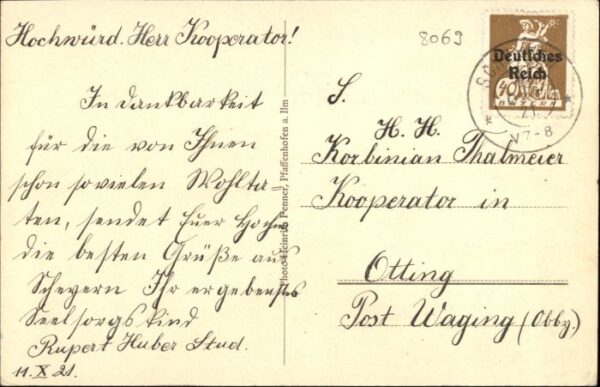 Hochwürd. Herr Kooperator!
In Dankbarkeit
für die von Ihnen
schon sovielen Wohlta-
ten, sendet Euer Hochw.
die besten Grüße aus
Scheyern Ihr ergebenstes
Seelsorgskind
Rupert Huber Stud.
11. X 21.
Photo Heinrich Penner, Pfaffenhofen a. Ilm
8069
Deutsches
Reich
40
BAYERN
V 7-8
S.
H. H.
Korbinian Thalmeier
Kooperator in
Otting
Post Waging (Obby.)